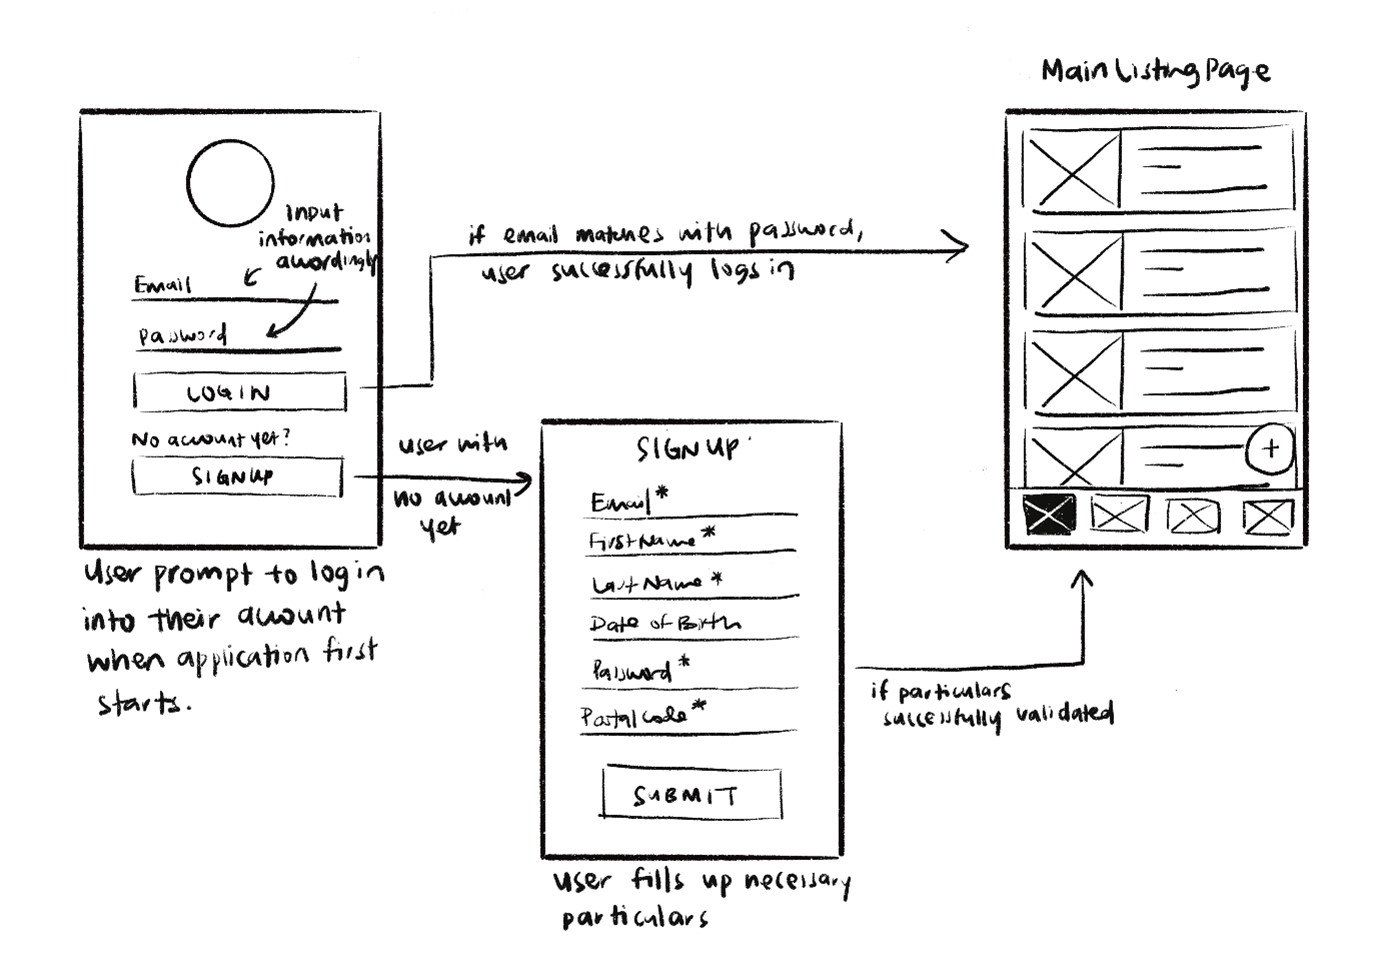 Main Listing Page
input
information
accordingly
Email
Password
LOGIN
No account yet?
SIGNUP
User prompt to login
into their account
when application first
starts.
if email matches with password,
user successfully logs in
user with
no account
yet
SIGNUP
Email*
First Name*
Last Name*
Date of Birth
Password*
Postal Code*
SUBMIT
user fills up necessary
particulars
if particulars
successfully validated
+